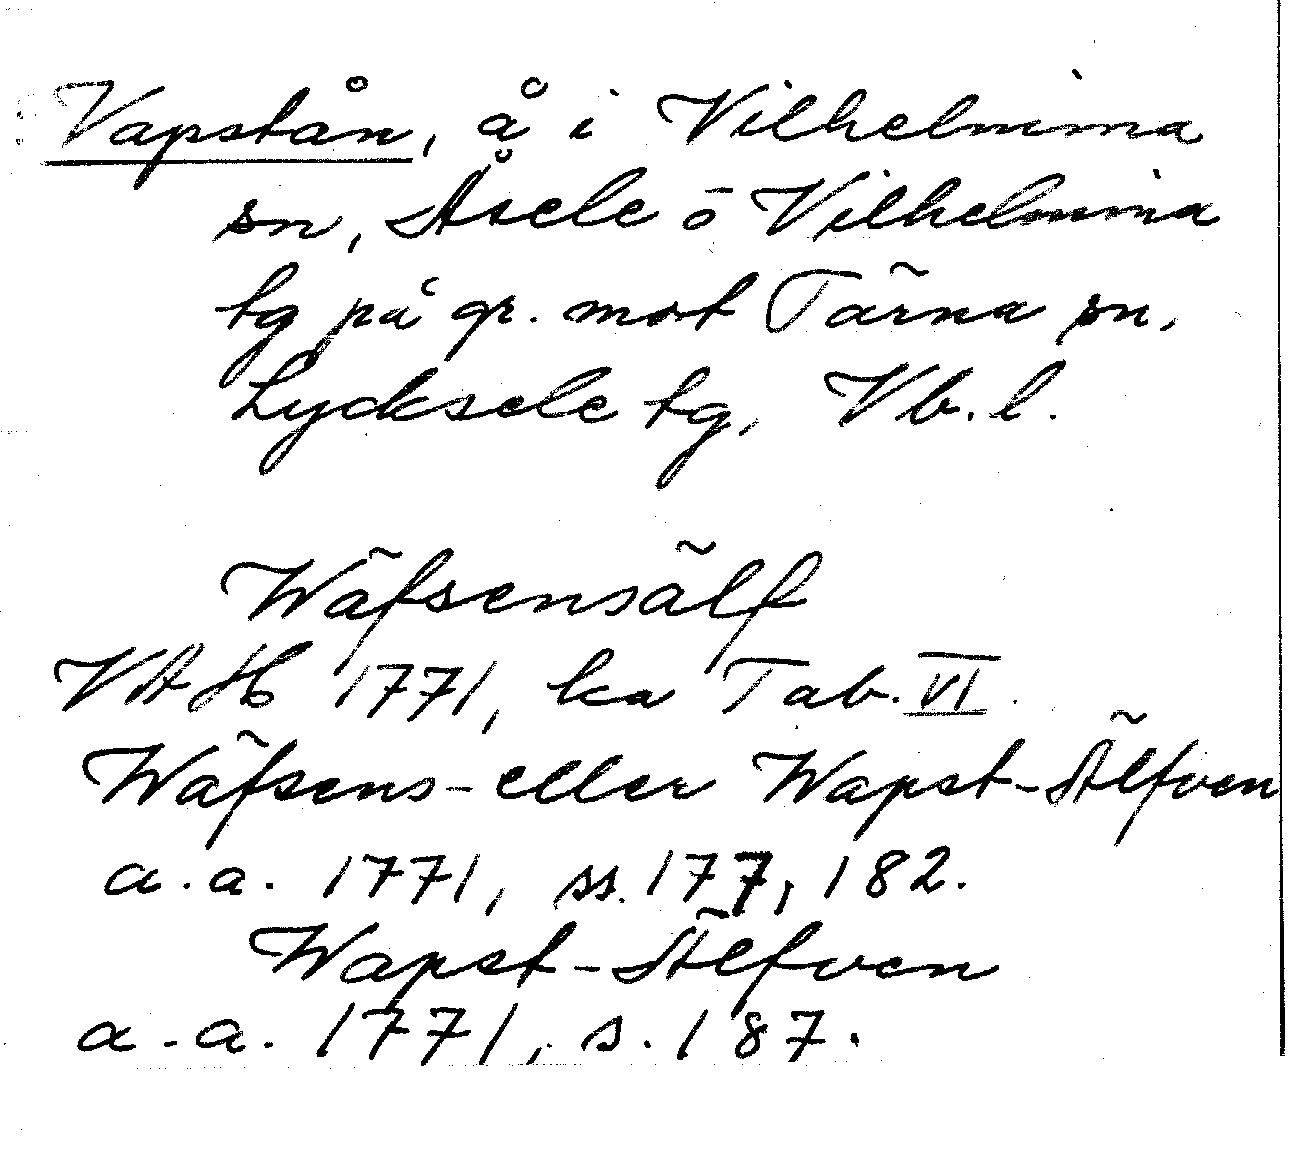 Vapstån, å i Vilhelmina
sn, Åsele o Vilhelmina
tg på gr. mot Tärna sn,
Lycksele tg, Vb. l.
Wäfsensälf
VAH 1771, ka Tab. VI.
Wäfsens- eller Wapst-Älfven
a.a. 1771, ss. 177, 182.
Wapst-Älfven
a.a. 1771, s. 187.